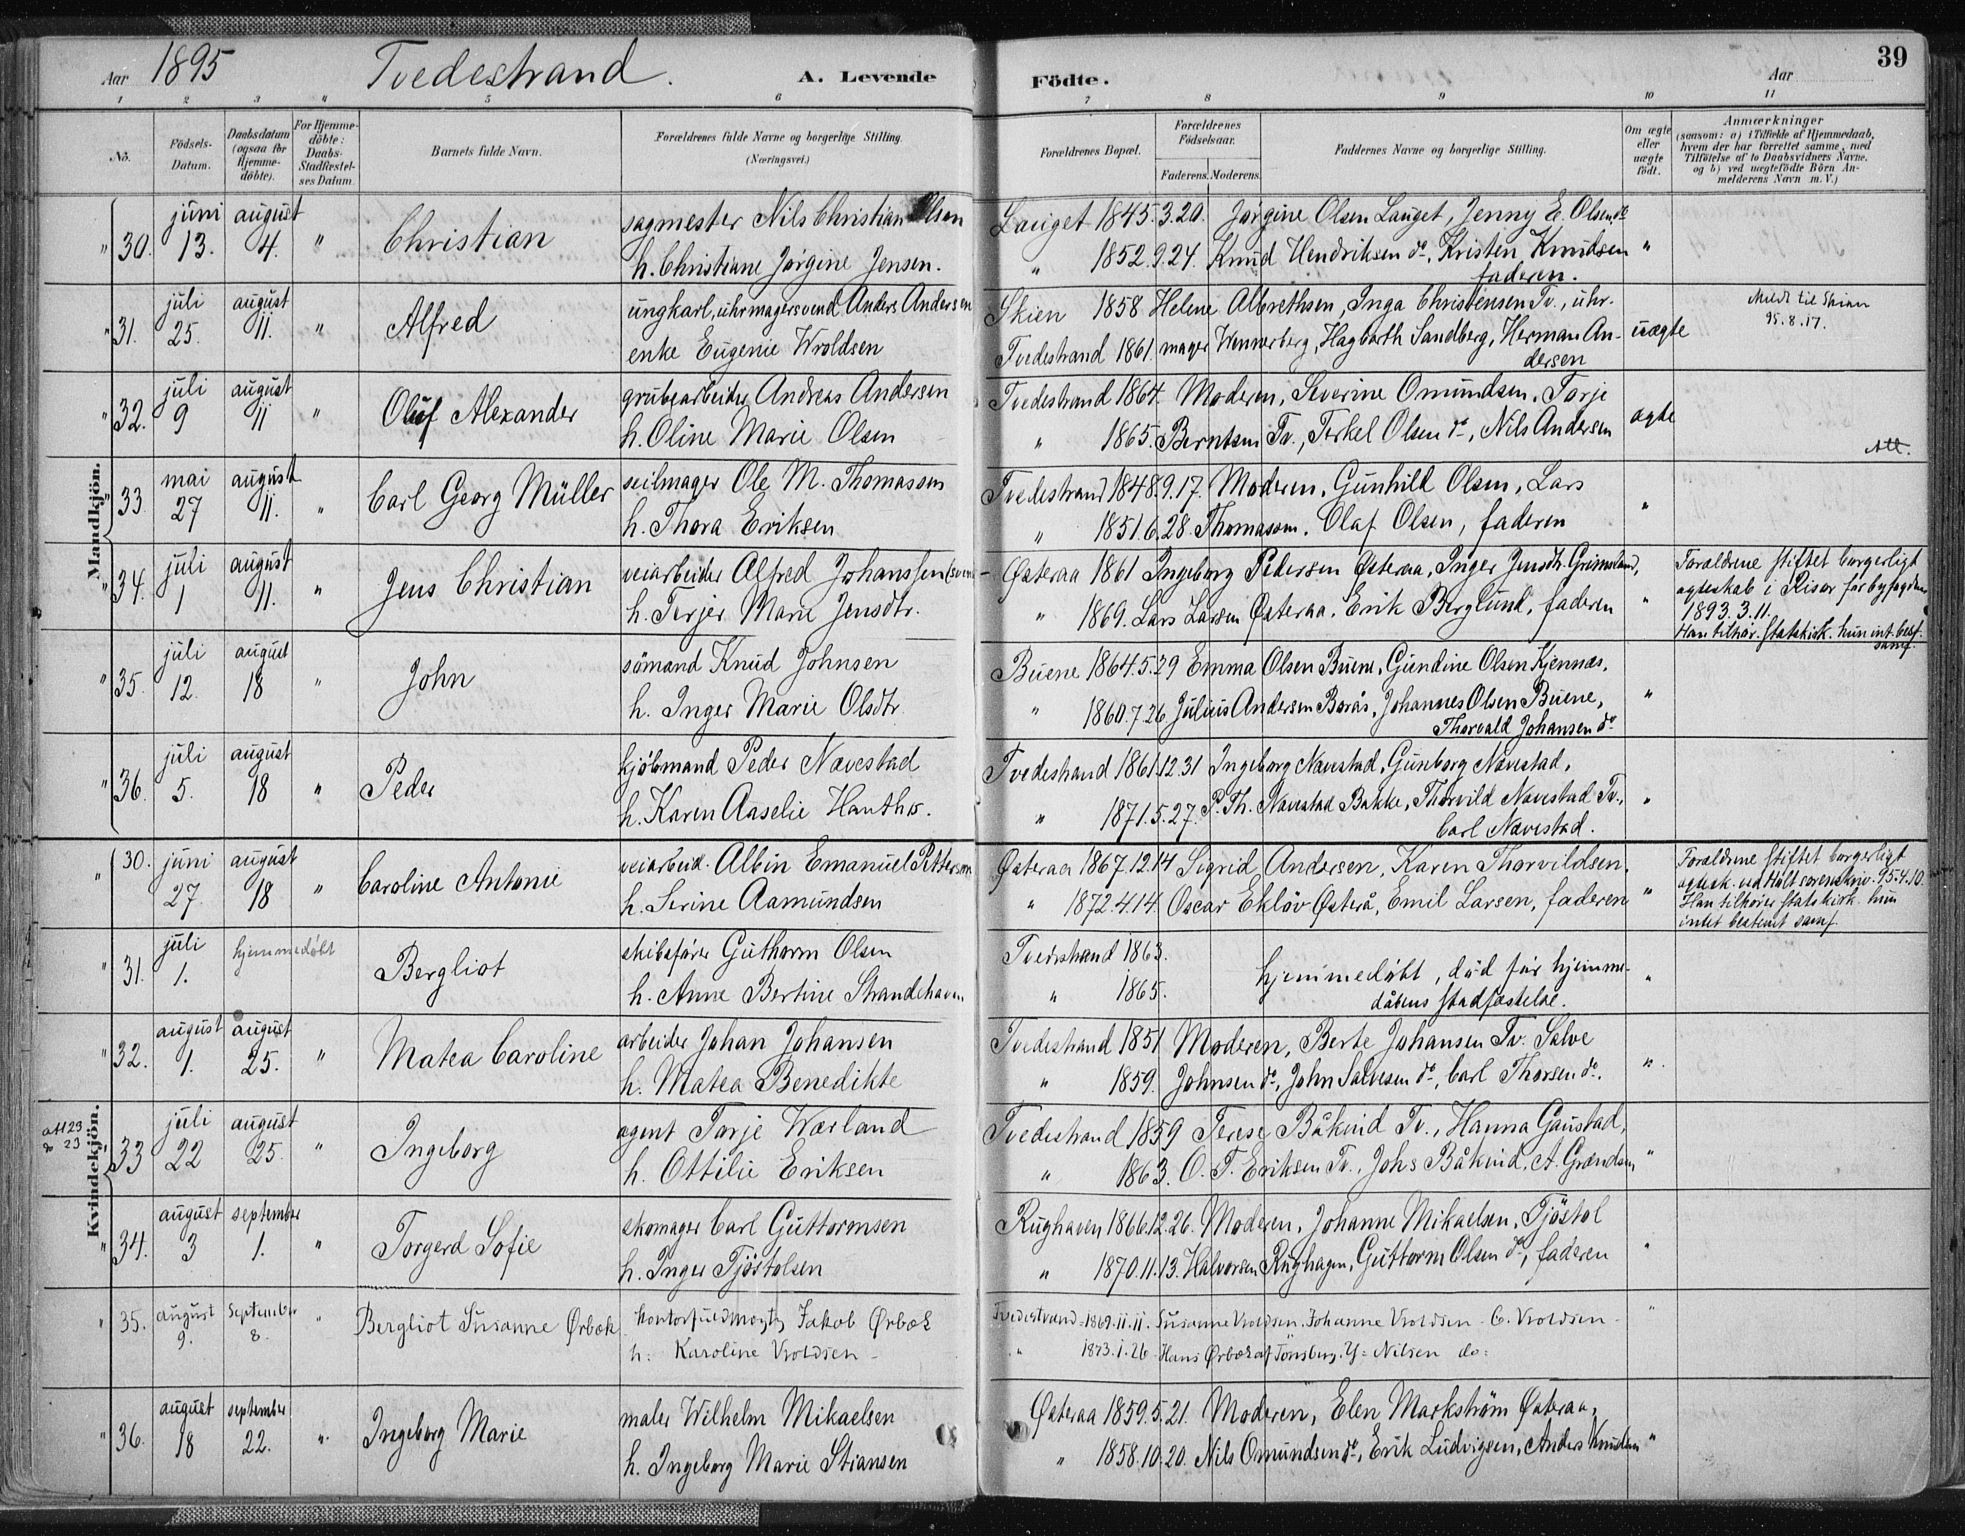 Aar 1895 Tvedestrand. A. Levende Födte. Aar 39
1 2 3 4 5 6 7 8 9 10 11
No. Födsels-Datum. Daabsdatum (ogsaa for Hjemmedöbte). For Hjemmedöbte: Daabs-Stadfæstelses Datum Barnets fulde Navn. Forældrenes fulde Navne og borgerlige Stilling. (Næringsvei.) Forældrenes Bopæl. Forældrenes Födselsaar. Faderens. Moderens. Faddernes Navne og borgerlige Stilling. Om ægte eller uægte födt. Anmærkninger (saasom: a) i Tilfælde af Hjemmedaab, hvem der har forrettet samme, med Tilföielse af to Daabsvidners Navne, og b) ved uægtefödte Börn Anmelderens Navn m. V.)
Mandkjön.
" 30. juni 13. august 4. " Christian sagmester Nils Christian Olsen Lauget 1845.3.20. Jørgine Olsen Lauget, Jenny E. Olsen do
h. Christiane Jørgine Jensen. " 1852.9.24. Knud Hendriksen do, Kristen Knudsen "
faderen.
" 31. juli 25. august 11. " Alfred ungkarl, uhrmagersvend Anders Andersen Skien 1858 Helene Albrethsen, Inga Christensen Tv., uhr-
enke Eugenie Wroldsen Tvedestrand 1861. mager Wennerberg, Hagbarth Sandberg, Herman An-
dersen uægte Meldt til Skien 95.8.17.
" 32. juli 9 august 11 " Oluf Alexander grubearbeider Andreas Andersen Tvedestrand 1864. Moderen, Severine Omundsen, Torje
h. Oline Marie Olsen " 1865. Berntsen Tv., Terkel Olsen do, Nils Andersen ægte Att.
" 33. mai 27 august 11. " Carl Georg Müller seilmager Ole M. Thomassen Tvedestrand 1848.9.17. Moderen, Gunhild Olsen, Lars
h. Thora Eriksen " 1851.6.28 Thomassen, Olaf Olsen, faderen "
" 34. juli 1 august 11. " Jens Christian veiarbeider Alfred Johanssen Østeraa 1861 Ingeborg Pedersen Østeraa, Inger Jensdtr. Grimsland,
h. Terjer Marie Jensdtr. " 1869. Lars Larsen Østeraa, Erik Berglund, faderen "
Forældrene stiftet borgerligt
ægteskab i Risør for byfogden
1893.3.11.
Han tilhør. statskirk. hun int. best.
samf.
" 35. juli 12. august 18 " John sømand Knud Johnsen Buene 1864.5.29 Emma Olsen Buene, Gundine Olsen Kjennes,
h. Inger Marie Olsdtr " 1860.7.26 Julius Andersen Borås, Johannes Olsen Buene,
Thorvald Johansen do "
" 36. juli 5. august 18 " Peder kjøbmand Peder Nævestad Tvedestrand 1861.12.31 Ingeborg Nævestad, Gunborg Nævestad,
h. Karen Aaselie Hanthis. " 1871.5.27. P. Th. Nævestad Bakke, Thorvild Nævestad Tv.,
Carl Nævestad. "
Kvindekjön.
" 30. juni 27. august 18 " Caroline Antonie veiarbeid. Albin Emanuel Petterson Østeraa 1867.12.14 Sigrid Andersen, Karen Thorvildsen,
h. Serine Aamundsen " 1872.4.14. Oscar Ekløv Østerå, Emil Larsen, faderen "
Forældrene stiftet borgerligt
ægtesk. ved Holt sorenskriv. 95.4.10.
Han tilhører statskirk. hun
intet bestemt samf.
" 31. juli 1. hjemmedøbt Bergliot skibsfører Guthorm Olsen Tvedestrand 1863.
h. Anne Bertine Strandehaven " 1865. hjemmedøbt, død før hjemme-
dåbens stadfæstelse. "
" 32. august 1. august 25. " Matea Caroline arbeider Johan Johansen Tvedestrand 1851 Moderen, Berte Johansen Tv. Salve
h. Matea Benedikte " 1859. Johnsen do, John Salvesen do, Carl Thorsen do. "
att 23 23 33 juli 22 august 25. " Ingeborg agent Torje Wærland Tvedestrand 1859 Terese Båkind Tv., Hanna Gaustad,
h. Ottilie Eriksen " 1863. O. T. Eriksen Tv., Johs Båkind, A. Grændsen "
" 34. august 3 september 1. " Torgerd Sofie skomager Carl Guttormsen Rughaven 1866.12.26. Moderen, Johanne Mikaelsen, Tjøstol
h. Inger Tjøstolsen " 1870.11.13. Halvorsen Rughagen, Guttorm Olsen do, faderen "
" 35. august 9. September 8. " Bergliot Susanne Ørbæk kontorfuldmægtig Jakob Ørbæk Tvedestrand 1869.11.11. Susanne Vroldsen. Johanne Vroldsen - C. Vroldsen -
h: Karoline Vroldsen - " 1873.1.26 Hans Ørbæk af Tönsberg. Y= Nilsen do: "
" 36. august 18 september 22. " Ingeborg Marie maler Wilhelm Mikaelsen Østeraa 1859.5.21. Moderen, Elen Markstrøm Østeraa,
h. Ingeborg Marie Stiansen " 1858.10.20. Nils Omundsen do, Erik Ludvigsen, Anders Knudsen "